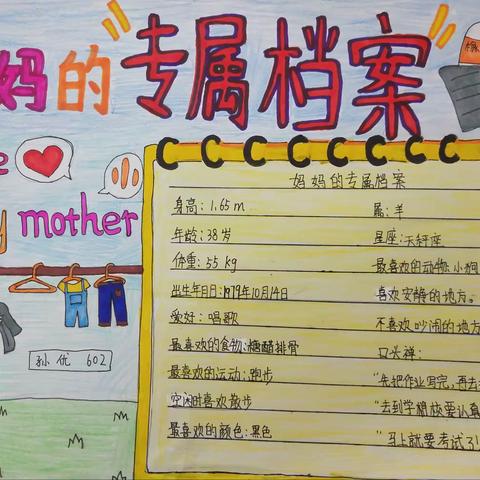 妈的“专属档案”
e
my mother
孙优 602
妈妈的专属档案
身高:1.65m
属:羊
年龄:38岁
星座:天秤座
体重:55kg
最喜欢的动物:小狗
出生年月日:1979年10月14日
喜欢安静的地方。
爱好:唱歌
不喜欢吵闹的地方
最喜欢的食物:糖醋排骨
口头禅:
最喜欢的运动:跑步
“先把作业写完,再去
空闲时喜欢散步
“去到学校
最喜欢的颜色:黑色
“马上就要考试了